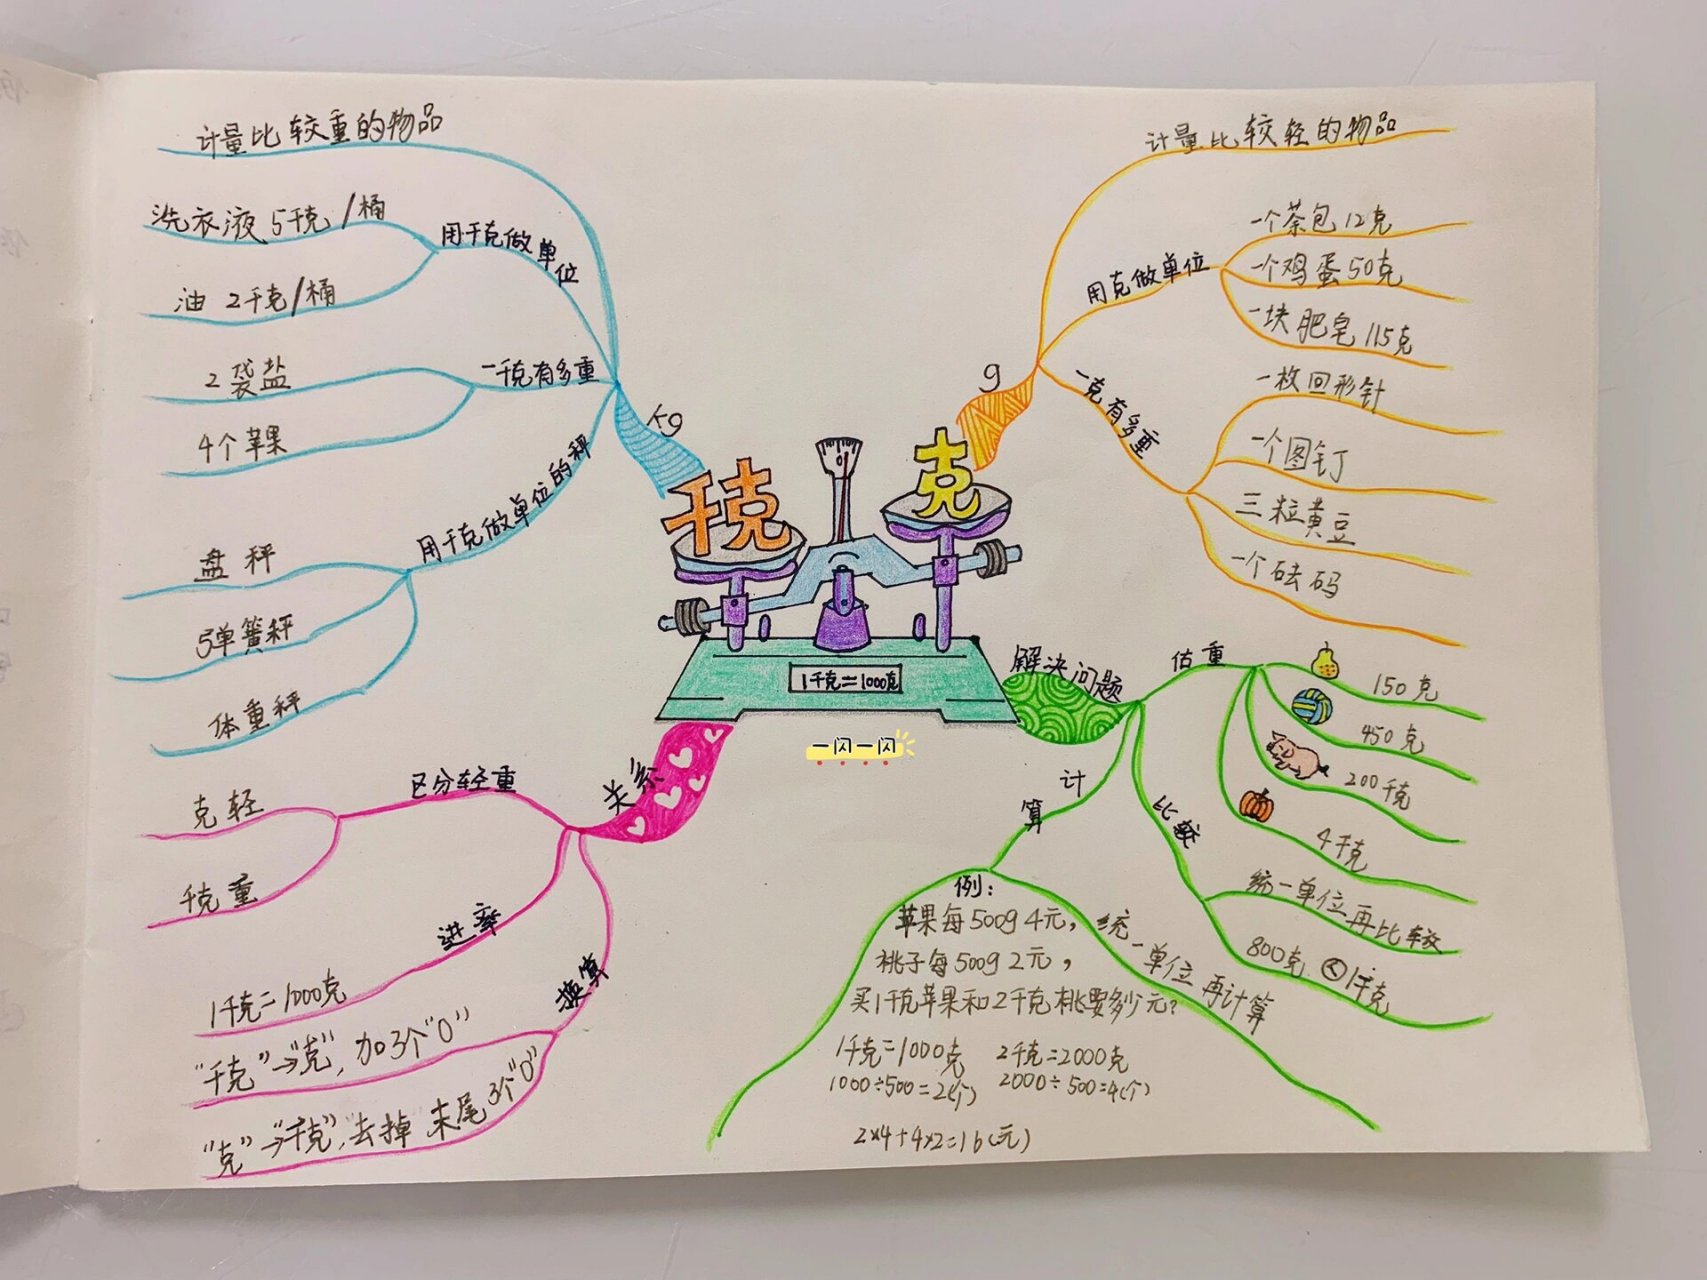 千克
克
1千克=1000克
一闪一闪
kg
计量比较重的物品
用千克做单位
洗衣液 5千克/桶
油 2千克/桶
一千克有多重
2袋盐
4个苹果
用千克做单位的秤
盘秤
弹簧秤
体重秤
g
计量比较轻的物品
用克做单位
一个茶包12克
一个鸡蛋50克
一块肥皂115克
一克有多重
一枚回形针
一个图钉
三粒黄豆
一个砝码
解决问题
估重
150克
450克
200千克
4千克
比较
统一单位再比较
800克<1千克
计算
统一单位再计算
例:
苹果每500g 4元,
桃子每500g 2元,
买1千克苹果和2千克桃要多少元?
1千克=1000克 2千克=2000克
1000÷500=2(个) 2000÷500=4(个)
2×4+4×2=16(元)
关系
区分轻重
克轻
千克重
进率
1千克=1000克
换算
"千克"→"克",加3个"0"
"克"→"千克",去掉末尾3个"0"